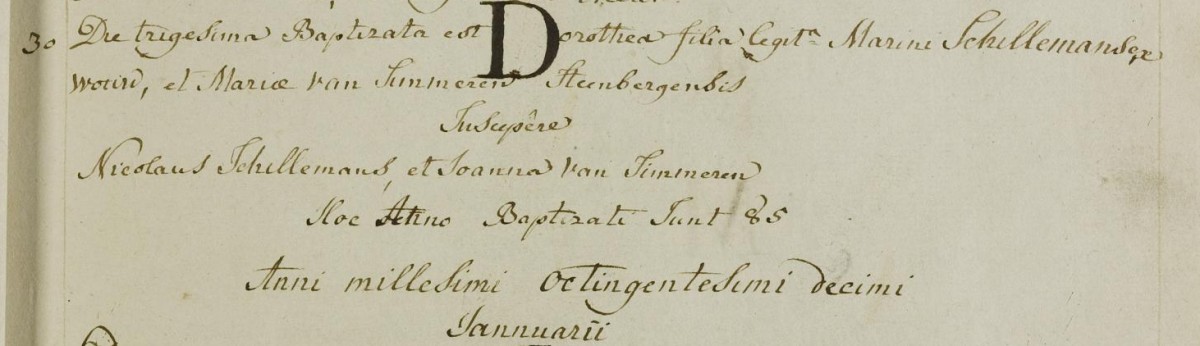 30 Die trigesima Baptizata est Dorothea filia legit.ᵃ Marini Schillemans ex
Wouw, et Mariæ van Timmeren Steenbergensis
Suscepêre
Nicolaus Schillemans, et Joanna van Timmeren
Hoc Anno Baptizati Sunt 85
Anni millesimi octingentesimi decimi
Jannuarii